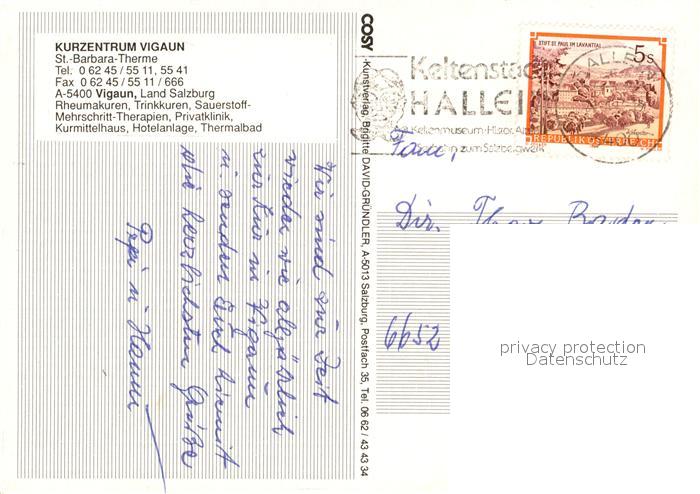 KURZENTRUM VIGAUN
St.-Barbara-Therme
Tel. 0 62 45 / 55 11, 55 41
Fax 0 62 45 / 55 11 / 666
A-5400 Vigaun, Land Salzburg
Rheumakuren, Trinkkuren, Sauerstoff-
Mehrschritt-Therapien, Privatklinik,
Kurmittelhaus, Hotelanlage, Thermalbad
Wir sind zur Zeit
wieder wie alljährlich
zur Kur in Vigaun
u. senden Euch hiemit
die herzlichsten Grüße
Pepi u Hanni
COSY -Kunstverlag, Brigitte DAVID-GRÜNDLER, A-5013 Salzburg, Postfach 35, Tel. 06 62 / 43 44 34
Keltenstadt
HALLEIN
Keltenmuseum·Histor. 
zum Salzbergwerk
HALLEIN
STIFT ST. PAUL IM LAVANTTAL
5s
REPUBLIK ÖSTERREICH
Fam.
Dir.
6652
privacy protection
Datenschutz